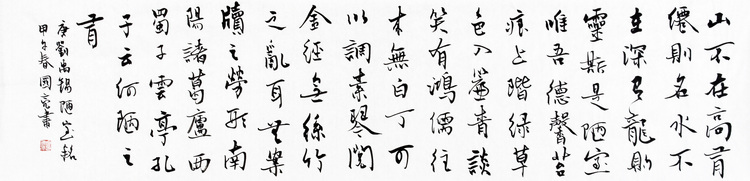 山不在高有
僊則名水不
在深有龍則
靈斯是陋室
唯吾德馨苔
痕上階綠草
色入簾青談
笑有鴻儒往
来無白丁可
以調素琴閱
金經無絲竹
之亂耳無案
牘之勞形南
陽諸葛廬西
蜀子雲亭孔
子云何陋之
有
唐劉禹錫陋室銘
甲午春國亮書